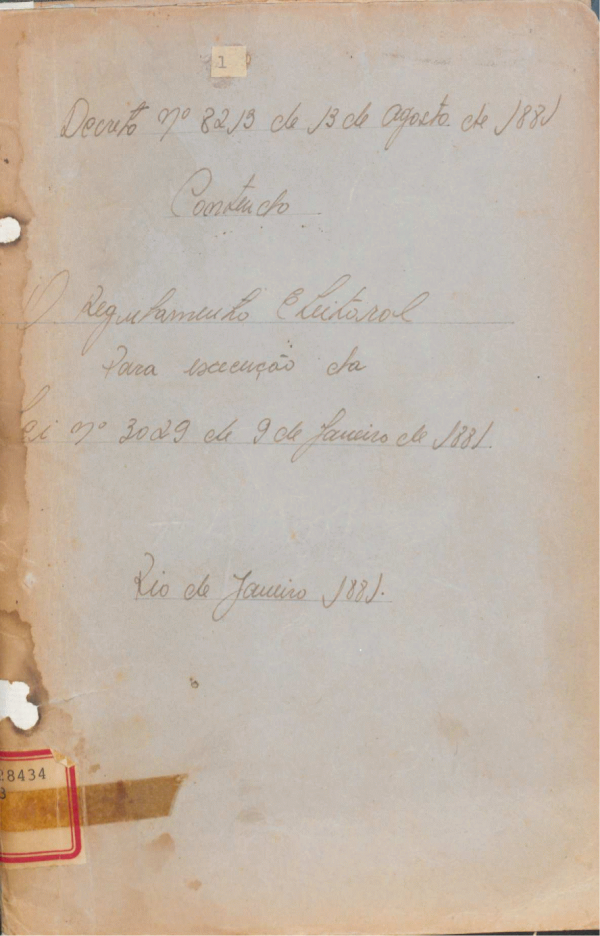 1
Decreto nº 8213 de 13 de Agosto de 1881
Contendo
O Regulamento Eleitoral
Para execução da
Lei nº 3029 de 9 de Janeiro de 1881
Rio de Janeiro 1881.
28434